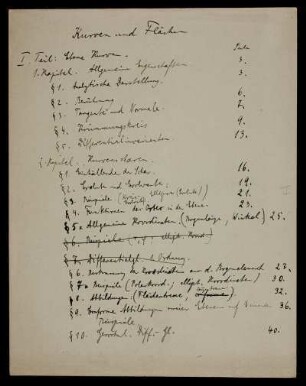 Kurven und Flächen
Seite
I. Teil: Ebene Kurven. 3.
1. Kapitel. Allgemeine Eigenschaften 3.
§ 1. Analytische Darstellung.
§ 2. 6.
§ 3. Tangente und Normale. 7.
§ 4. Krümmungskreis 9.
§ 5. Differentialinvarianten 13.
2. Kapitel. Kurvenscharen.
§ 1. Einhüllende der Schar. 16.
§ 2. Evolute und Evolvente. 19.
§ 3. Beispiele 21.
§ 4. Funktionen des Ortes in der Ebene. 23.
§ 5. Allgemeine Koordinaten (Bogenlänge, Winkel) 25.
§ 6. Beispiele
§ 7. Differentialgl. 1. Ordnung.
§ 6. der Koordinaten aus d. Bogenelement 28.
§ 7. Beispiele (Polarkoord., ellipt. Koordinaten) 30.
§ 8. Abbildungen (Flächentreue, 32.
§ 9. Konforme Abbildungen einer Ebene auf 36.
Beispiele
§ 10. Gewöhnl. Diff. Gl. 40.